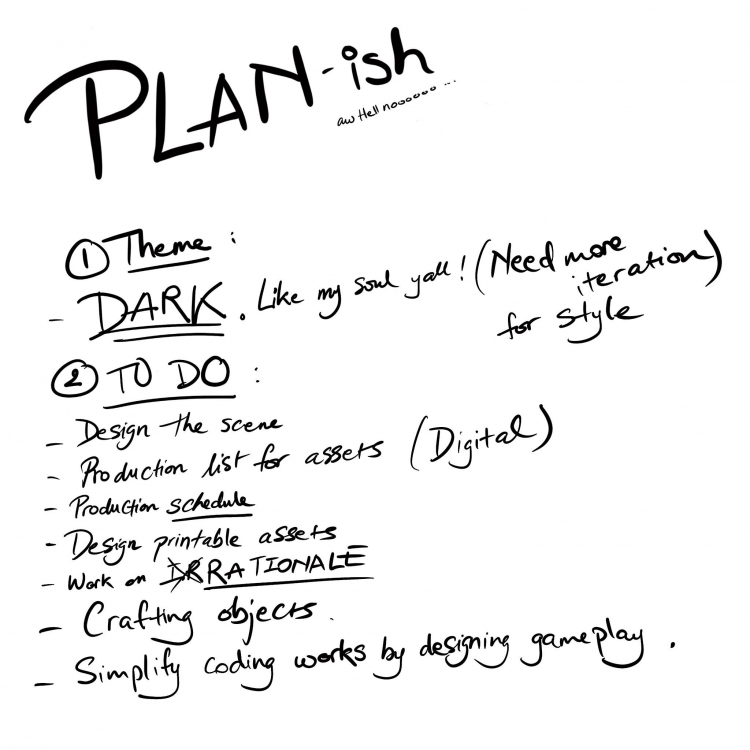 PLAN-ish
aw Hell noooooo...
① Theme :
- DARK. Like my soul yall! (Need more
iteration)
for style
② TO DO :
- Design the scene
- Production list for assets (Digital)
- Production schedule
- Design printable assets
- Work on IRRATIONALE
- Crafting objects.
- Simplify coding works by designing gameplay.